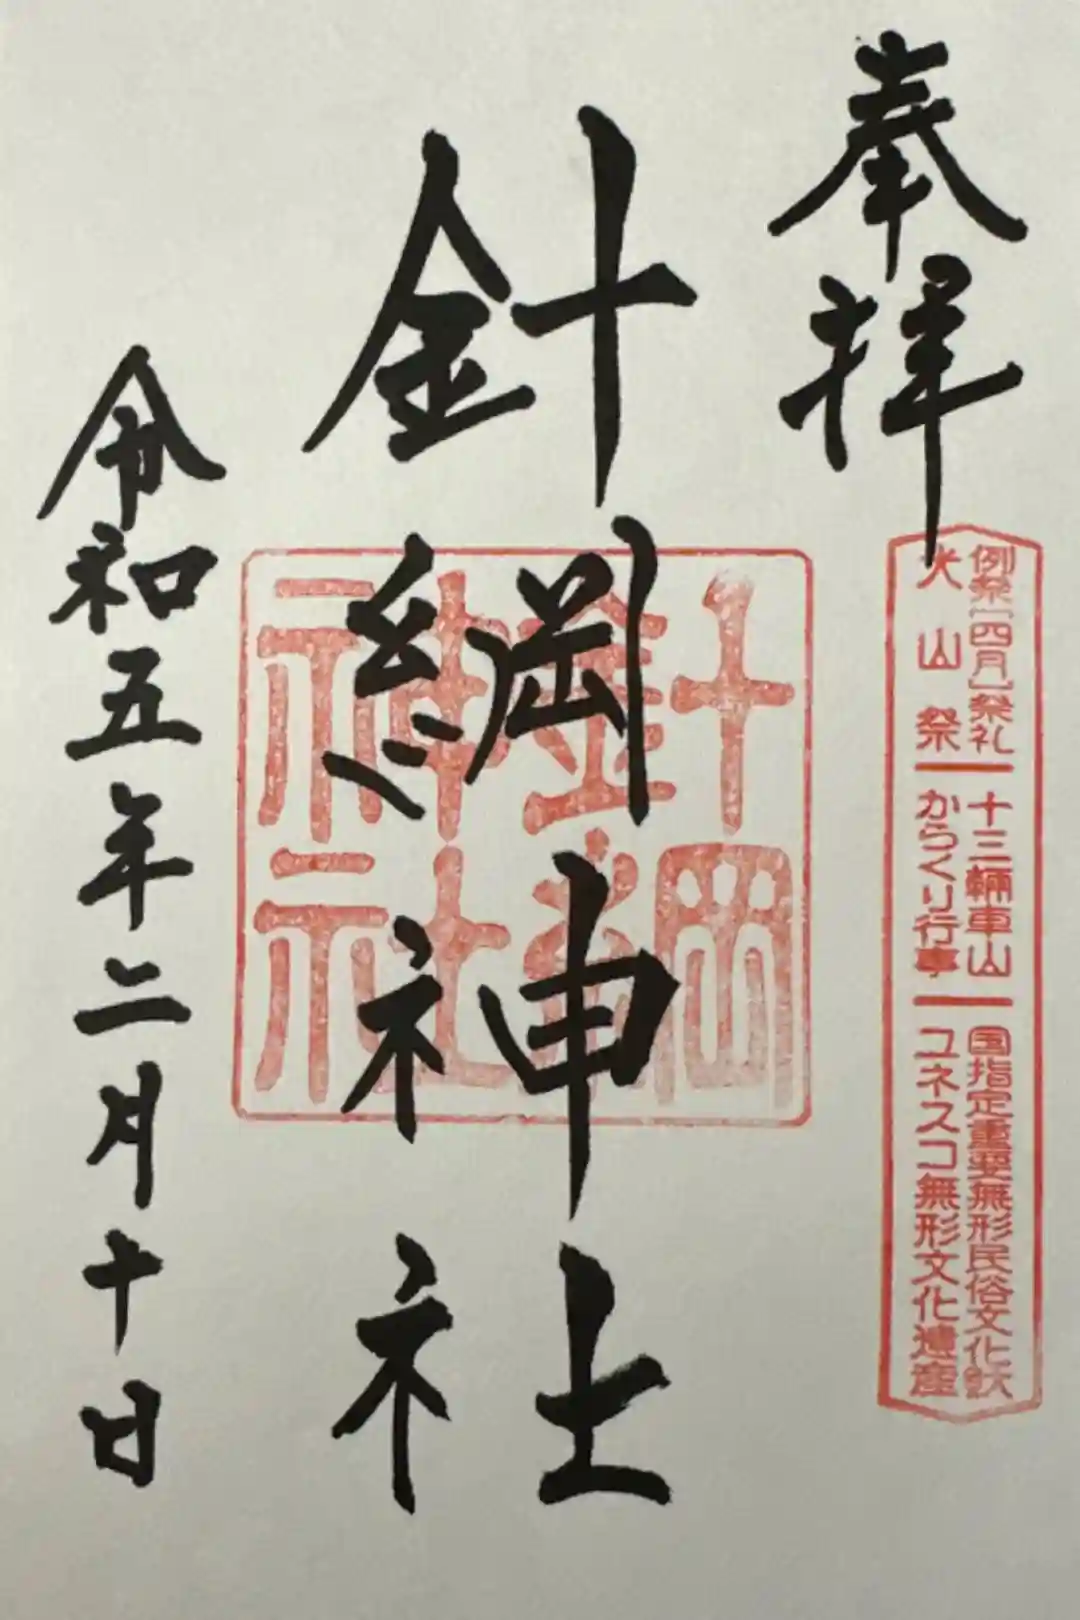 奉拝
例祭[四月]祭礼 十三輛車山 国指定重要無形民俗文化財
犬山祭 からくり行事 ユネスコ無形文化遺産
針綱神社
針綱神社
令和五年二月十日